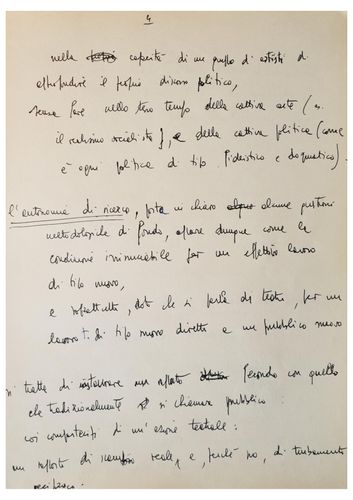 4
nella capacità di un gruppo di artisti di
approfondire il proprio discorso politico,
senza fare nello stesso tempo della cattiva arte (v.
il realismo socialista), e della cattiva politica (come
è ogni politica di tipo fideistico e dogmatico).
l'autonomia di ricerca, posta in chiaro alcune questioni
metodologiche di fondo, appare dunque come la
condizione irrinunciabile per un effettivo lavoro
di tipo nuovo,
e soprattutto, dato che si parla di teatro, per un
lavoro t. di tipo nuovo diretto a un pubblico nuovo
si tratta di instaurare un rapporto fecondo con quello
che tradizionalmente si chiamava pubblico
coi componenti di un'azione teatrale:
un rapporto di scambio reale, e, perché no, di turbamento
reciproco.